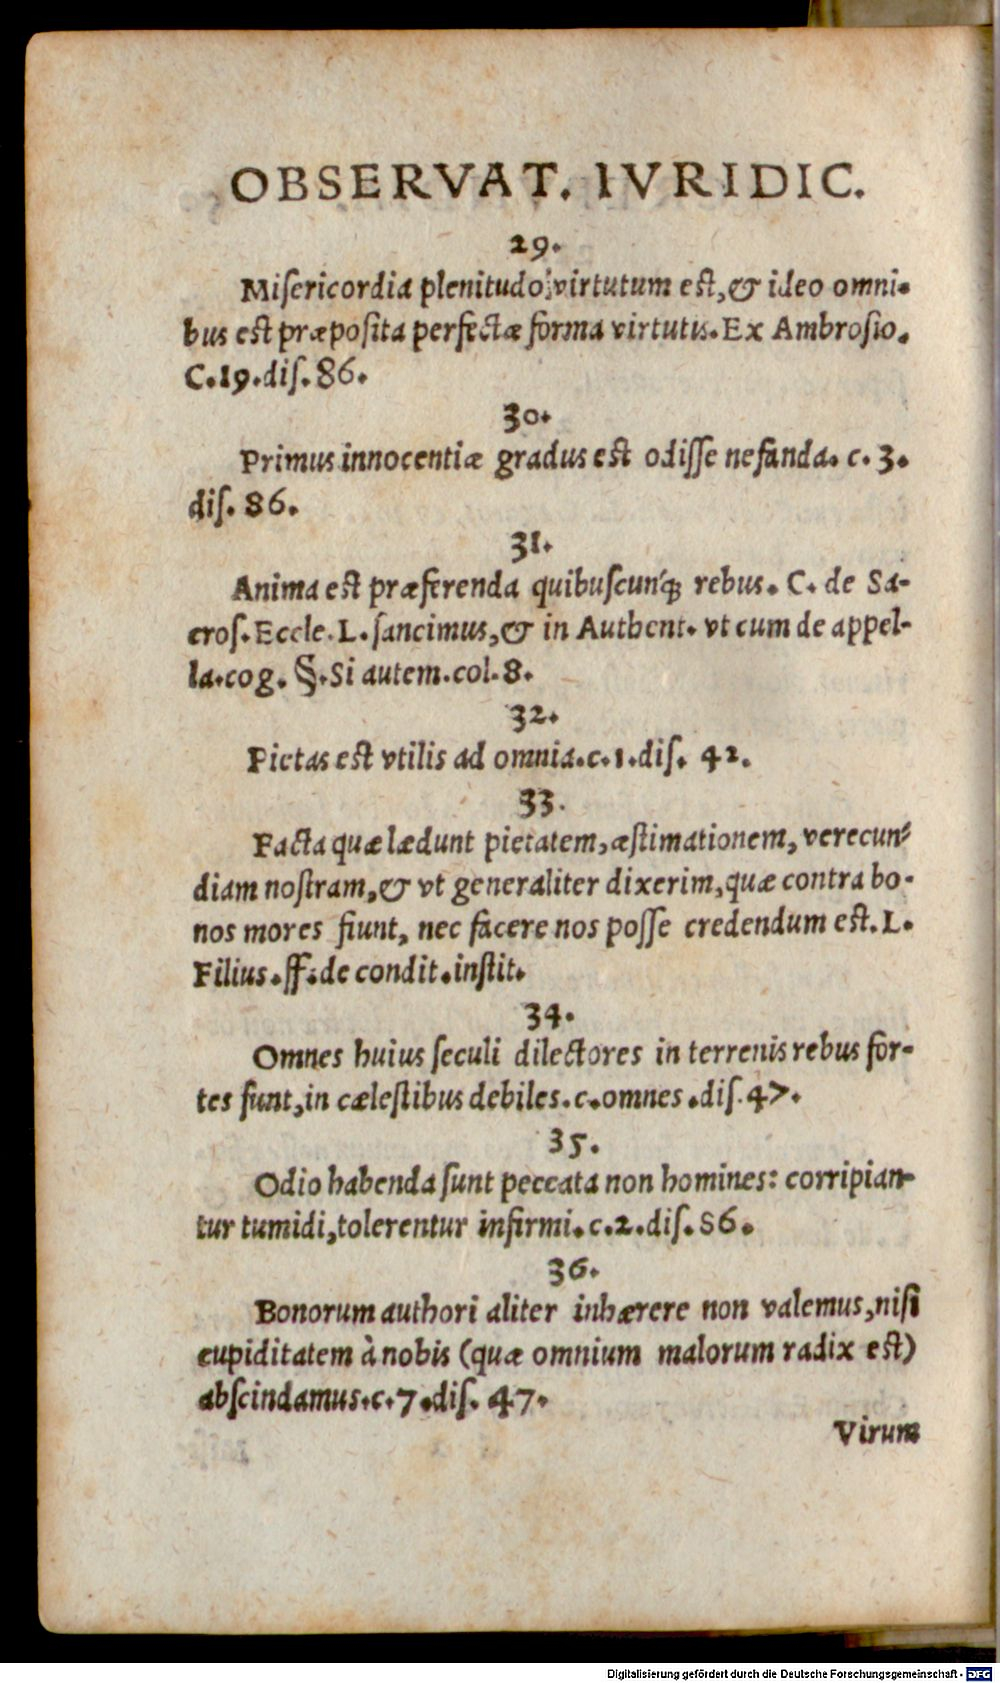 OBSERVAT. IVRIDIC.
29.
Miſericordia plenitudo virtutum est, & ideo omni-
bus est præposita perfectæ forma virtutis. Ex Ambroſio.
C. 19. diſ. 86.
30.
Primus innocentiæ gradus est odiſſe nefanda. c. 3.
diſ. 86.
31.
Anima est præferenda quibuſcunq́; rebus. C. de Sa-
croſ. Eccle. L. ſancimus, & in Authent. vt cum de appel-
la. cog. §. Si autem. col. 8.
32.
Pietas est vtilis ad omnia. c. 1. diſ. 42.
33.
Facta quæ lædunt pietatem, æſtimationem, verecun-
diam noſtram, & vt generaliter dixerim, quæ contra bo-
nos mores fiunt, nec facere nos poſſe credendum est. L.
Filius. ff. de condit. inſtit.
34.
Omnes huius ſeculi dilectores in terrenis rebus for-
tes ſunt, in cæleſtibus debiles. c. omnes. diſ. 47.
35.
Odio habenda ſunt peccata non homines: corripian-
tur tumidi, tolerentur infirmi. c. 2. diſ. 86.
36.
Bonorum authori aliter inhærere non valemus, niſi
cupiditatem à nobis (quæ omnium malorum radix est)
abſcindamus. c. 7. diſ. 47.
Virum
Digitalisierung gefördert durch die Deutsche Forschungsgemeinschaft - DFG